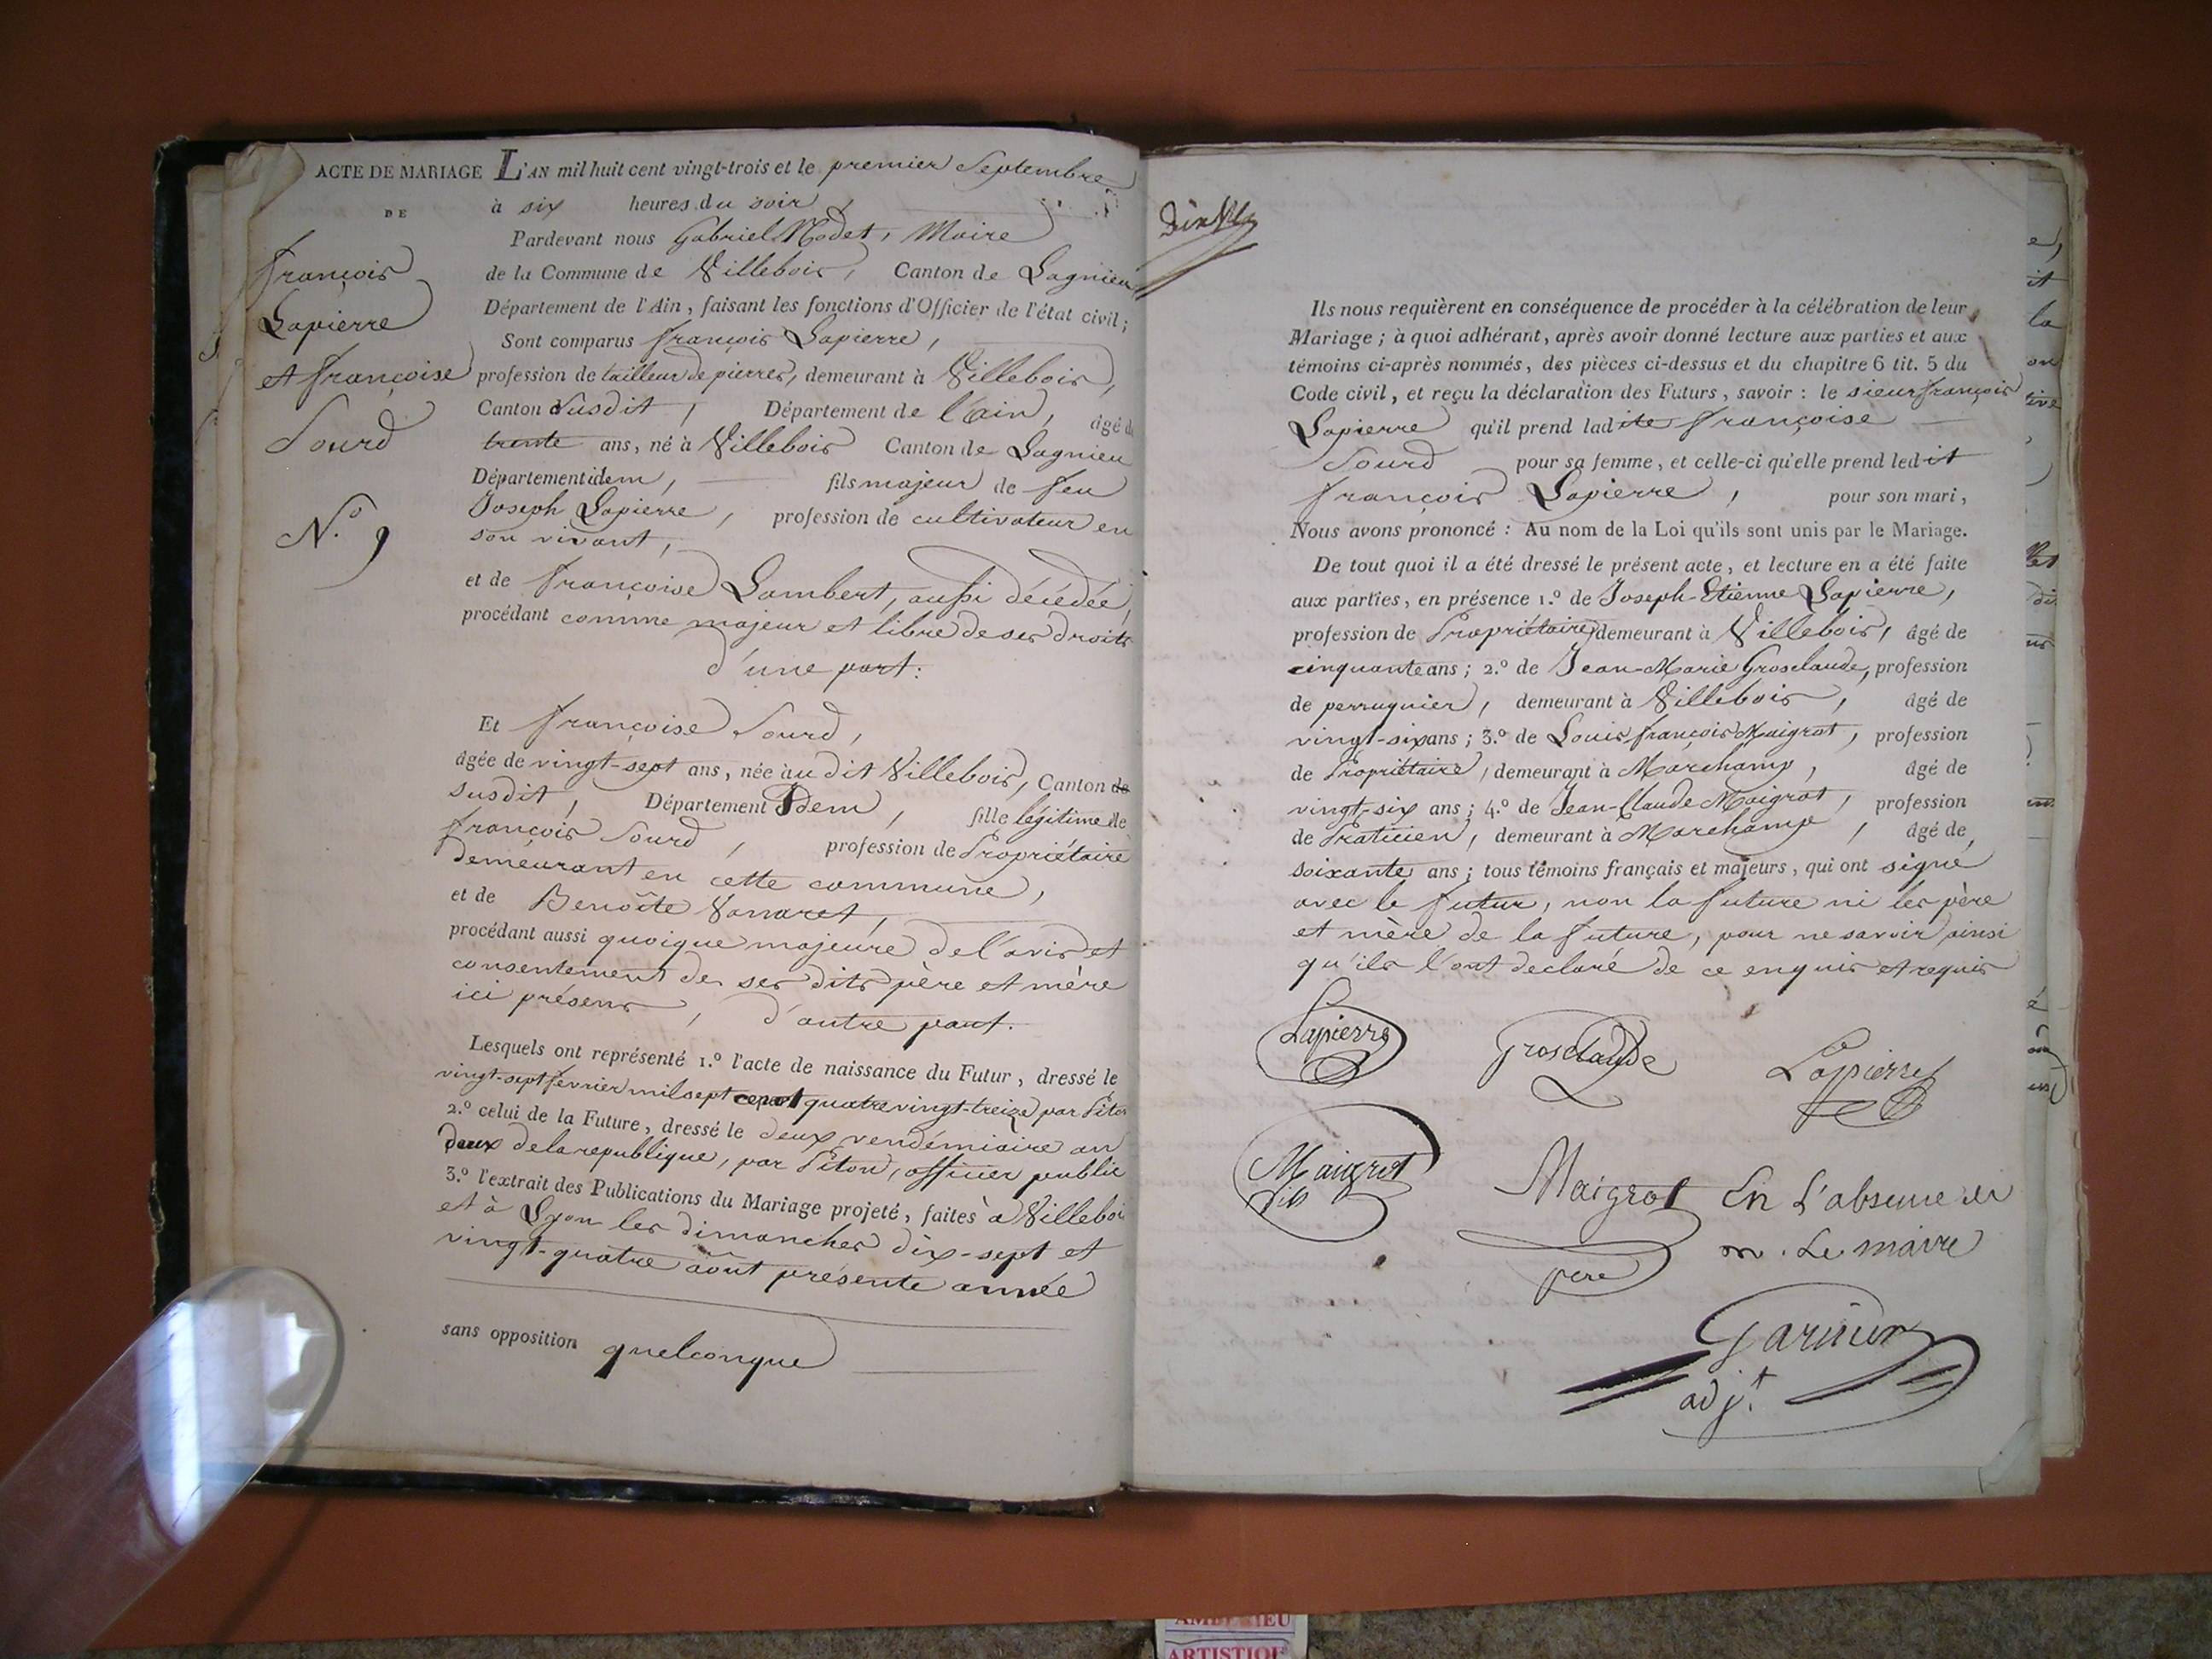 ACTE DE MARIAGE
DE
françois
Lapierre
et françoise
Sourd
N.o 9
L'AN mil huit cent vingt-trois et le premier Septembre
à six heures du soir,
Pardevant nous Gabriel Modet, Maire
de la Commune de Villebois, Canton de Lagnieu
Département de l'Ain, faisant les fonctions d'Officier de l'état civil;
Sont comparus françois Lapierre,
profession de tailleur de pierres, demeurant à Villebois,
Canton susdit, Département de l'ain, âgé de
trente ans, né à Villebois Canton de Lagnieu
Département idem, fils majeur de feu
Joseph Lapierre, profession de cultivateur en
son vivant,
et de françoise Lambert, aussi décédée,
procédant comme majeur et libre de ses droits
d'une part:
Et françoise Sourd,
âgée de vingt-sept ans, née audit Villebois, Canton de
susdit, Département Idem, fille légitime de
françois Sourd, profession de Propriétaire
demeurant en cette commune,
et de Benoîte Vanaret,
procédant aussi quoique majeure de l'avis et
consentement de ses dits père et mère
ici présens, d'autre part.
Lesquels ont représenté 1.o l'acte de naissance du Futur, dressé le
vingt-sept février mil sept cent quatrevingt-treize par Piton
2.o celui de la Future, dressé le deux vendémiaire an
deux de la republique, par Piton, officier public
3.o l'extrait des Publications du Mariage projeté, faites à Villebois
et à Lyon les dimanches dix-sept et
vingt-quatre août présente année
sans opposition quelconque
Ils nous requièrent en conséquence de procéder à la célébration de leur
Mariage; à quoi adhérant, après avoir donné lecture aux parties et aux
témoins ci-après nommés, des pièces ci-dessus et du chapitre 6 tit. 5 du
Code civil, et reçu la déclaration des Futurs, savoir: le sieur françois
Lapierre qu'il prend ladite françoise
Sourd pour sa femme, et celle-ci qu'elle prend ledit
françois Lapierre, pour son mari,
Nous avons prononcé: Au nom de la Loi qu'ils sont unis par le Mariage.
De tout quoi il a été dressé le présent acte, et lecture en a été faite
aux parties, en présence 1.o de Joseph-Etienne Lapierre,
profession de Propriétaire, demeurant à Villebois, âgé de
cinquante ans; 2.o de Jean-Marie Grosclaude, profession
de perruquier, demeurant à Villebois, âgé de
vingt-six ans; 3.o de Louis françois Maigrot, profession
de Propriétaire, demeurant à Marchamp, âgé de
vingt-six ans; 4.o de Jean-Claude Maigrot, profession
de Praticien, demeurant à Marchamp, âgé de
soixante ans; tous témoins français et majeurs, qui ont signé
avec le futur, non la future ni les père
et mère de la future, pour ne savoir ainsi
qu'ils l'ont declaré de ce enquis et requis
Lapierre Grosclaude Lapierre
Maigrot
fils
Maigrot
père
En L'absence de
m. Le maire
Garnier
adj.t
ARTISTIQUE